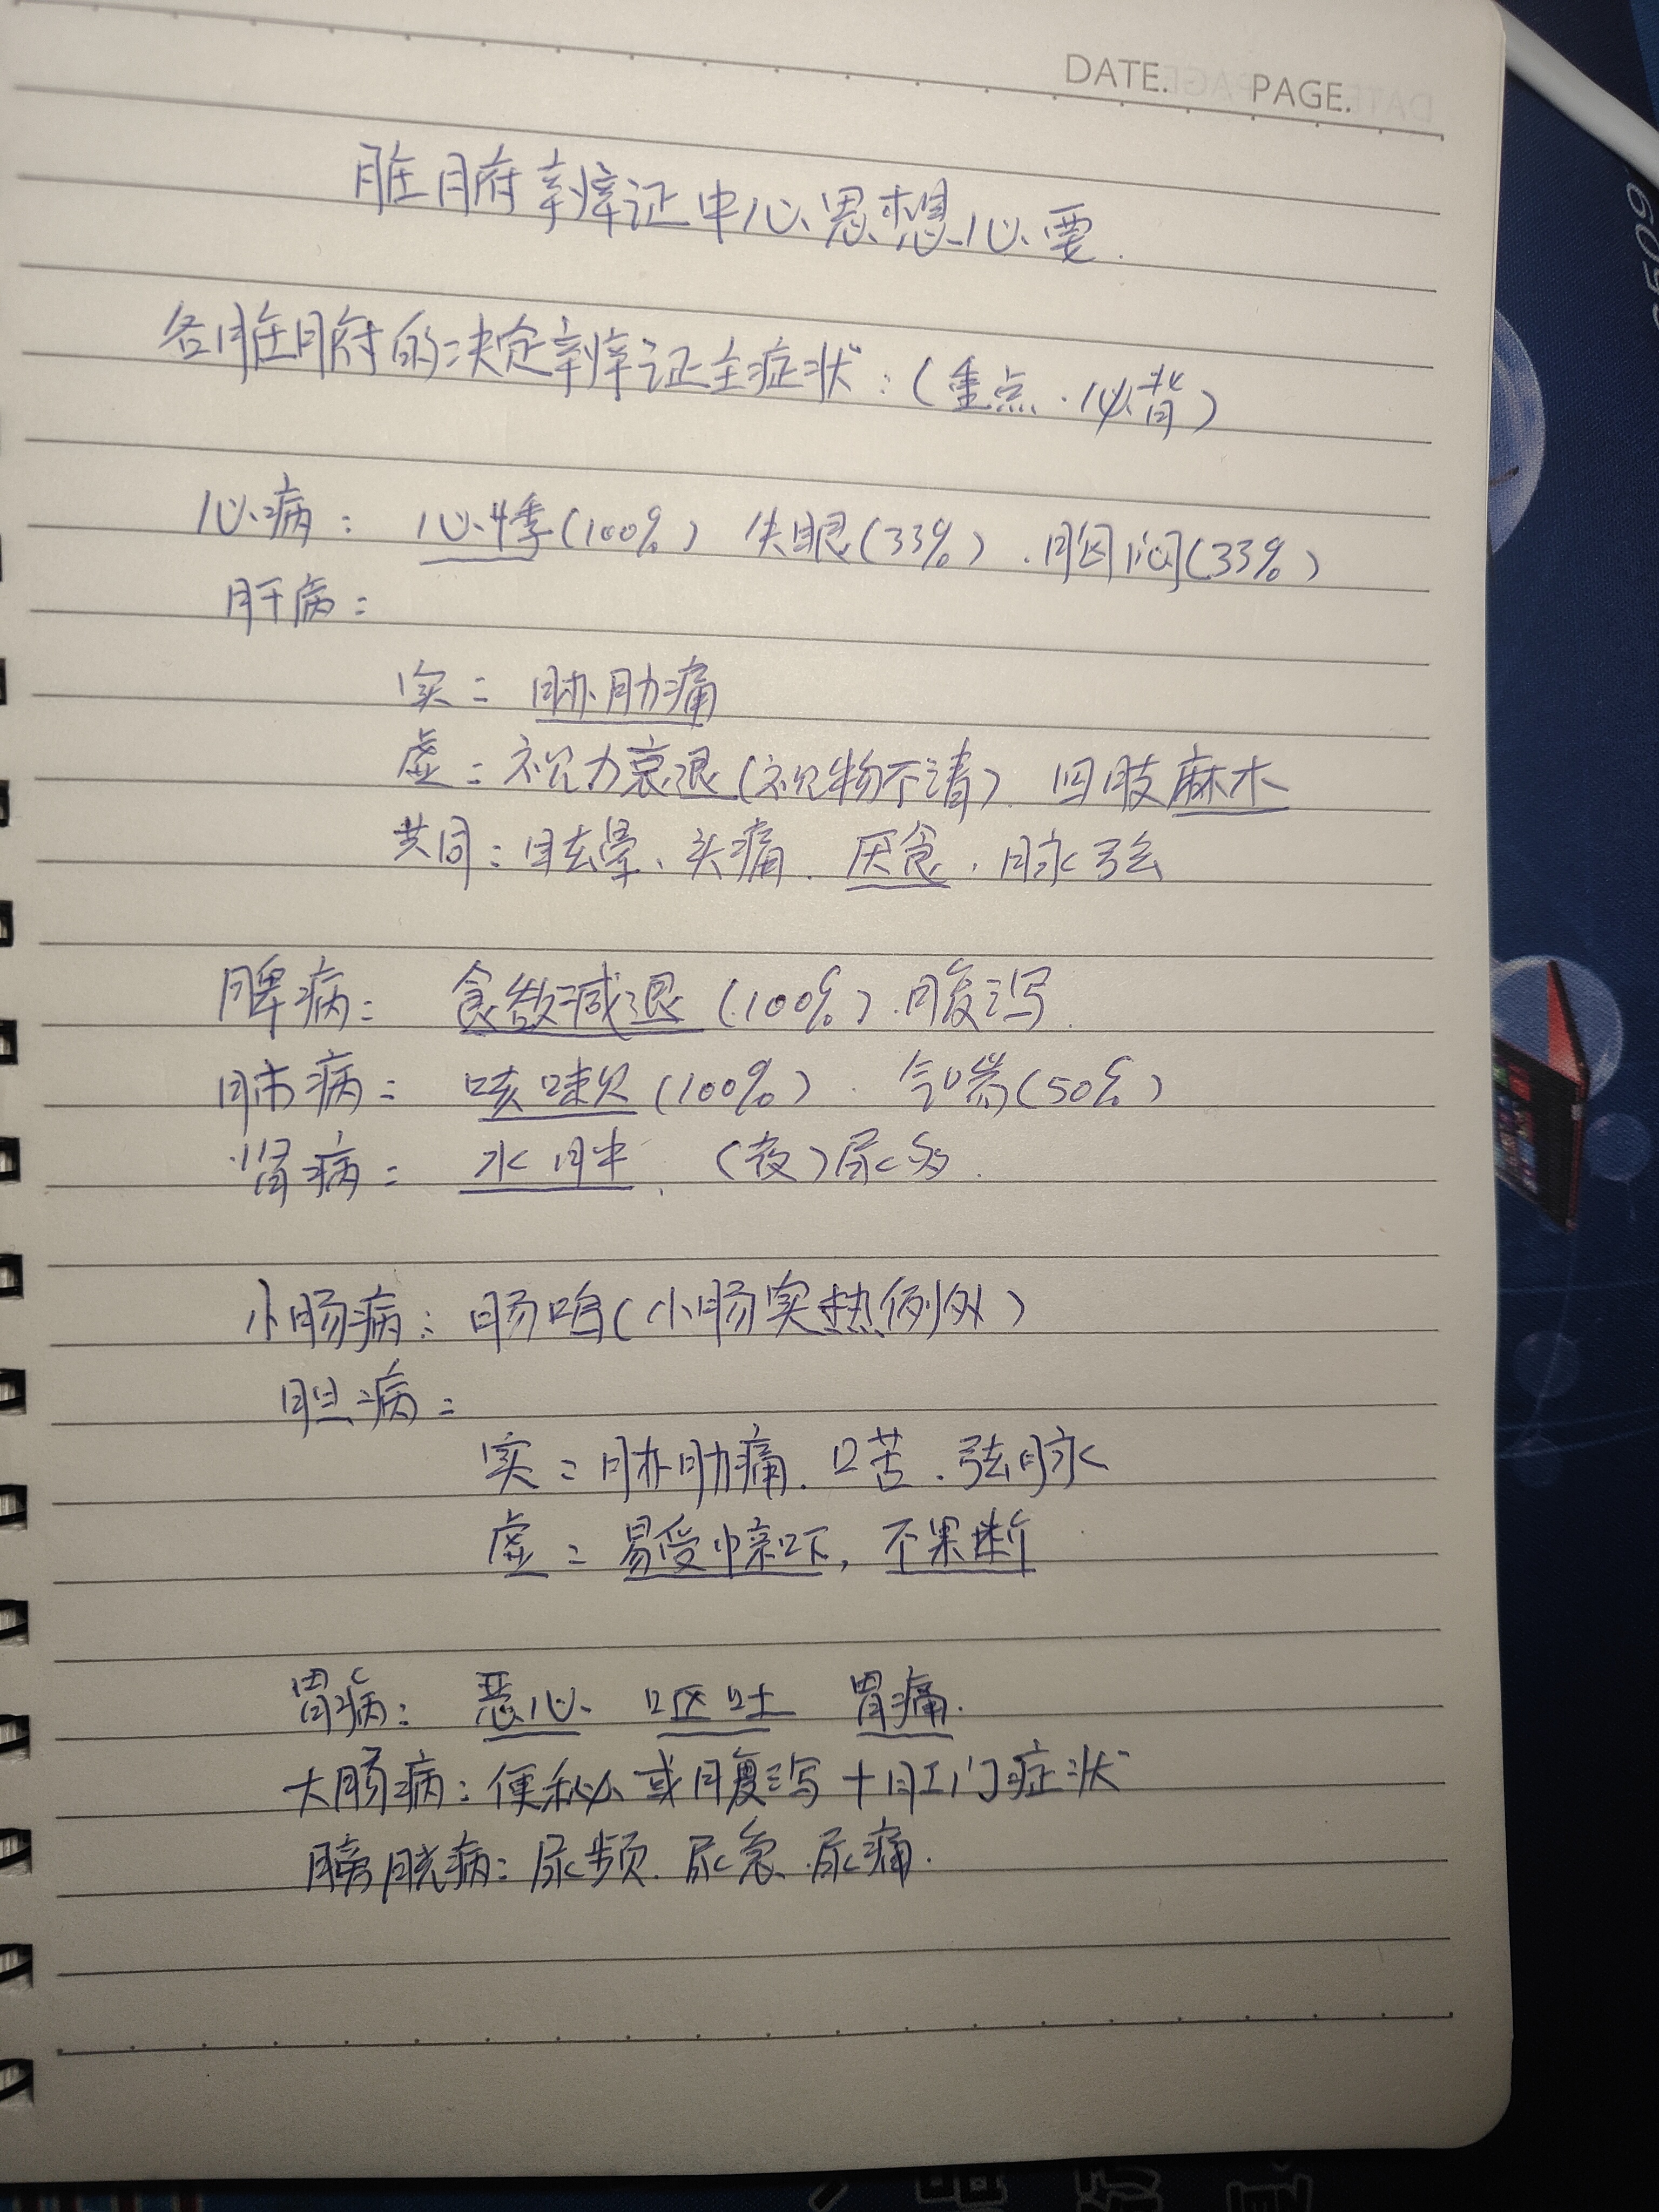 DATE. PAGE.
脏腑辨证中心思想心要.
各脏腑的决定辨证主症状:(重点.必背)
心病: 心悸(100%) 失眠(33%).胸闷(33%)
肝病:
实: 胁肋痛
虚:视力衰退(视物不清) 四肢麻木
共同:眩晕、头痛. 厌食.脉弦
脾病: 食欲减退(100%).腹泻.
肺病: 咳嗽(100%). 气喘(50%)
肾病: 水肿、(夜)尿多.
小肠病:肠鸣(小肠实热例外)
胆病:
实:胁肋痛.口苦.弦脉
虚:易受惊吓,不果断
胃病: 恶心、呕吐 胃痛.
大肠病:便秘或腹泻+肛门症状
膀胱病:尿频.尿急.尿痛.
6509